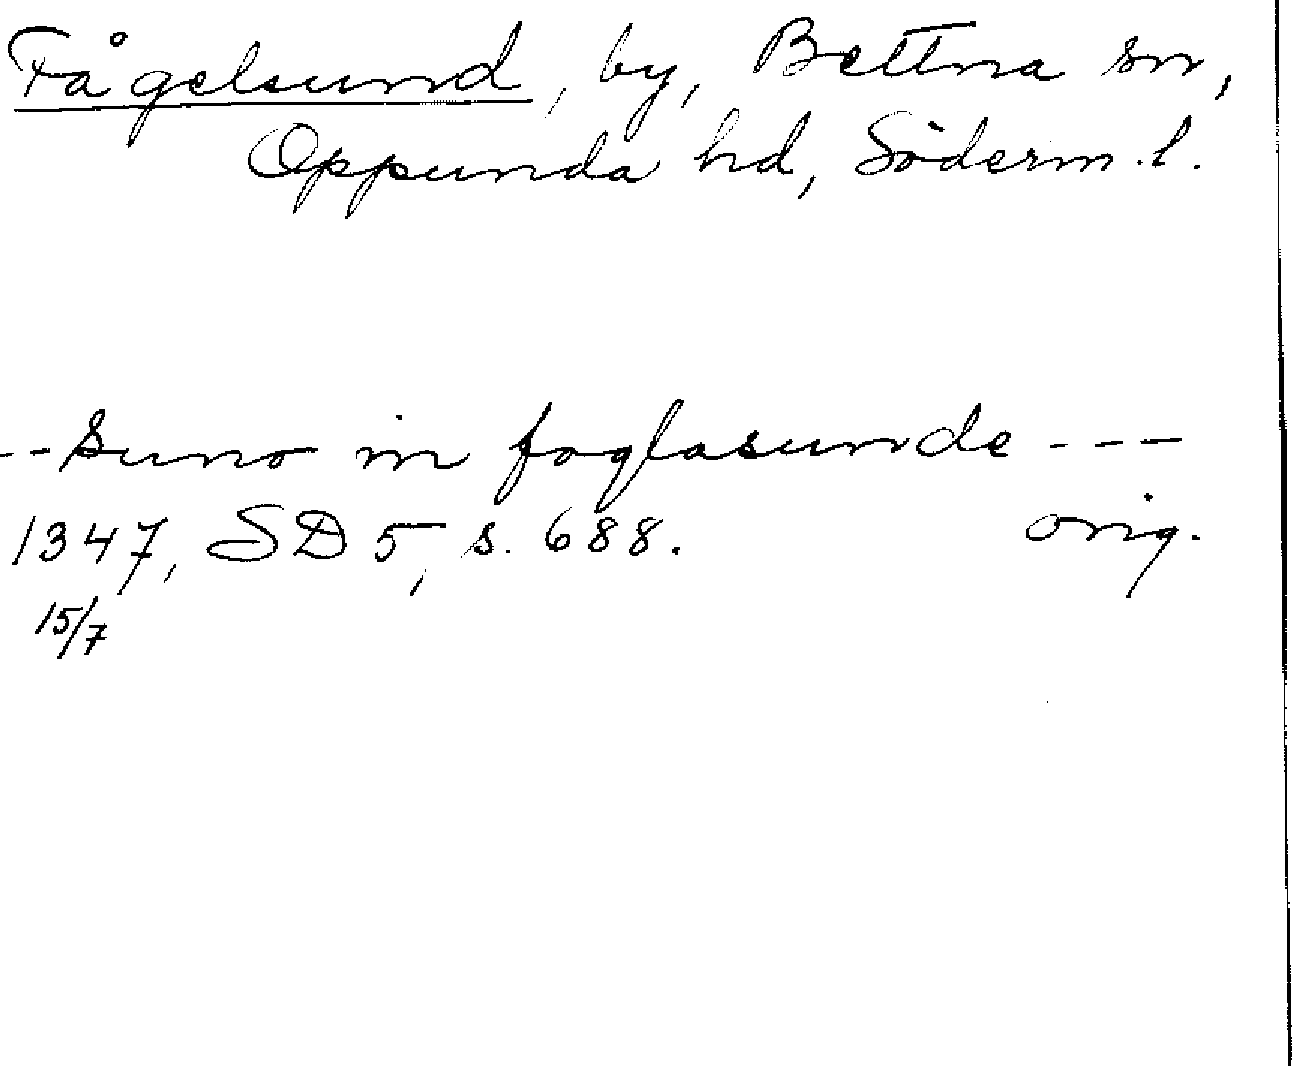 Fågelsund, by, Bettna sn,
Oppunda hd, Söderm. l.
--Suno in foglasunde ---
1347, SD 5, s. 688. orig.
15/7